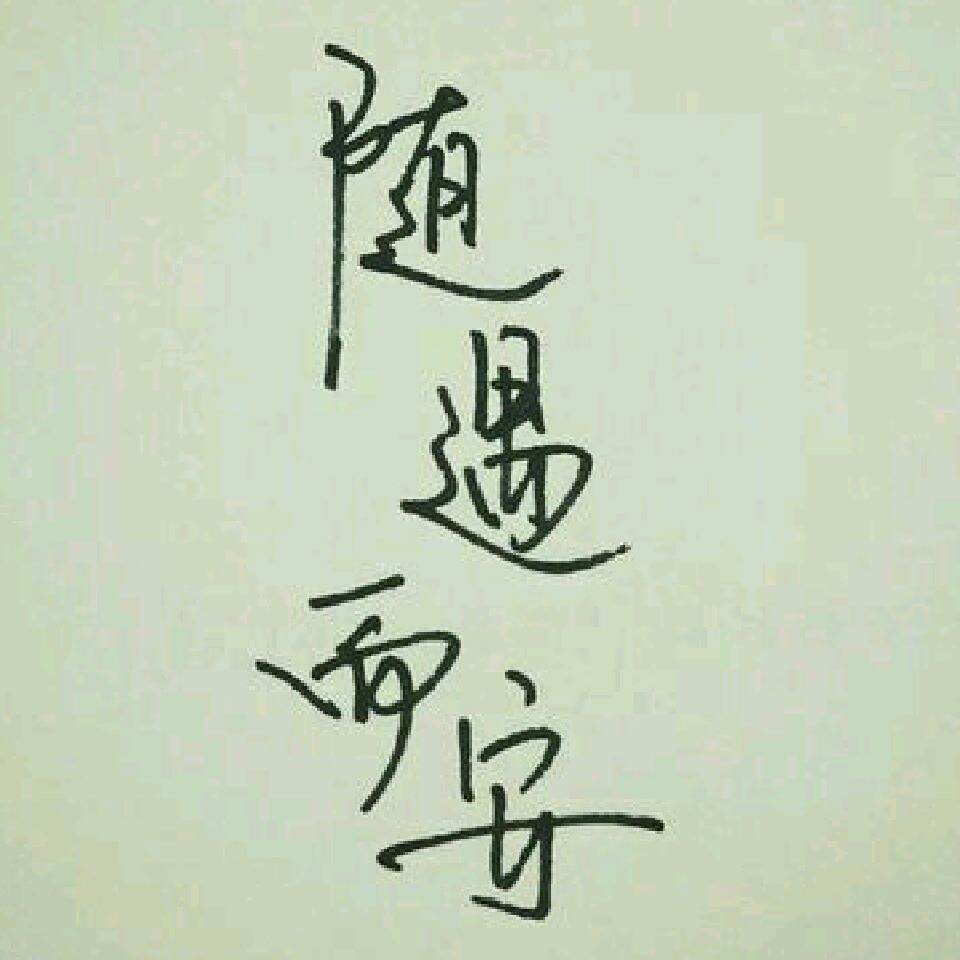 随遇而安